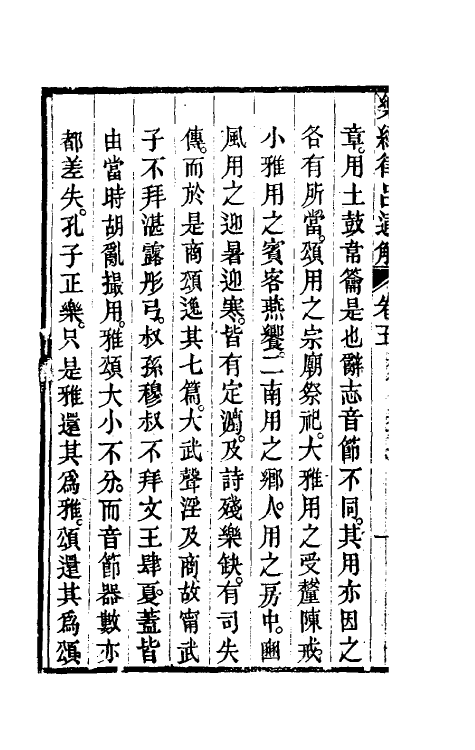 樂經律呂通解 卷五
章用土鼓韋籥是也辭志音節不同其用亦因之
各有所當頌用之宗廟祭祀大雅用之受釐陳戒
小雅用之賓客燕饗二南用之鄉人用之房中豳
風用之迎暑迎寒皆有定
及詩殘樂缺有司失
傳而於是商頌逸其七篇大武聲淫及商故甯武
子不拜湛露彤弓叔孫穆叔不拜文王肆夏蓋皆
由當時胡亂撮用雅頌大小不分而音節器數亦
都差失孔子正樂只是雅還其爲雅頌還其爲頌